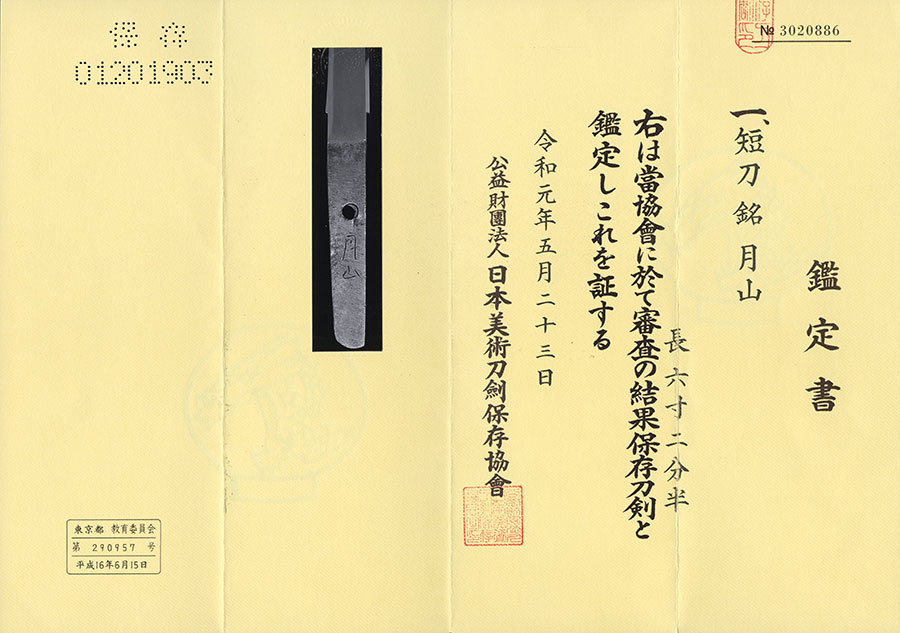 № 3020886
鑑定書
一、短刀 銘 月山
長六寸二分半
右は當協會に於て審査の結果保存刀剣と
鑑定しこれを証する
令和元年五月二十三日
公益財團法人日本美術刀劍保存協會
月山
保存
01201903
東京都 教育委員会
第 290957 号
平成16年6月15日